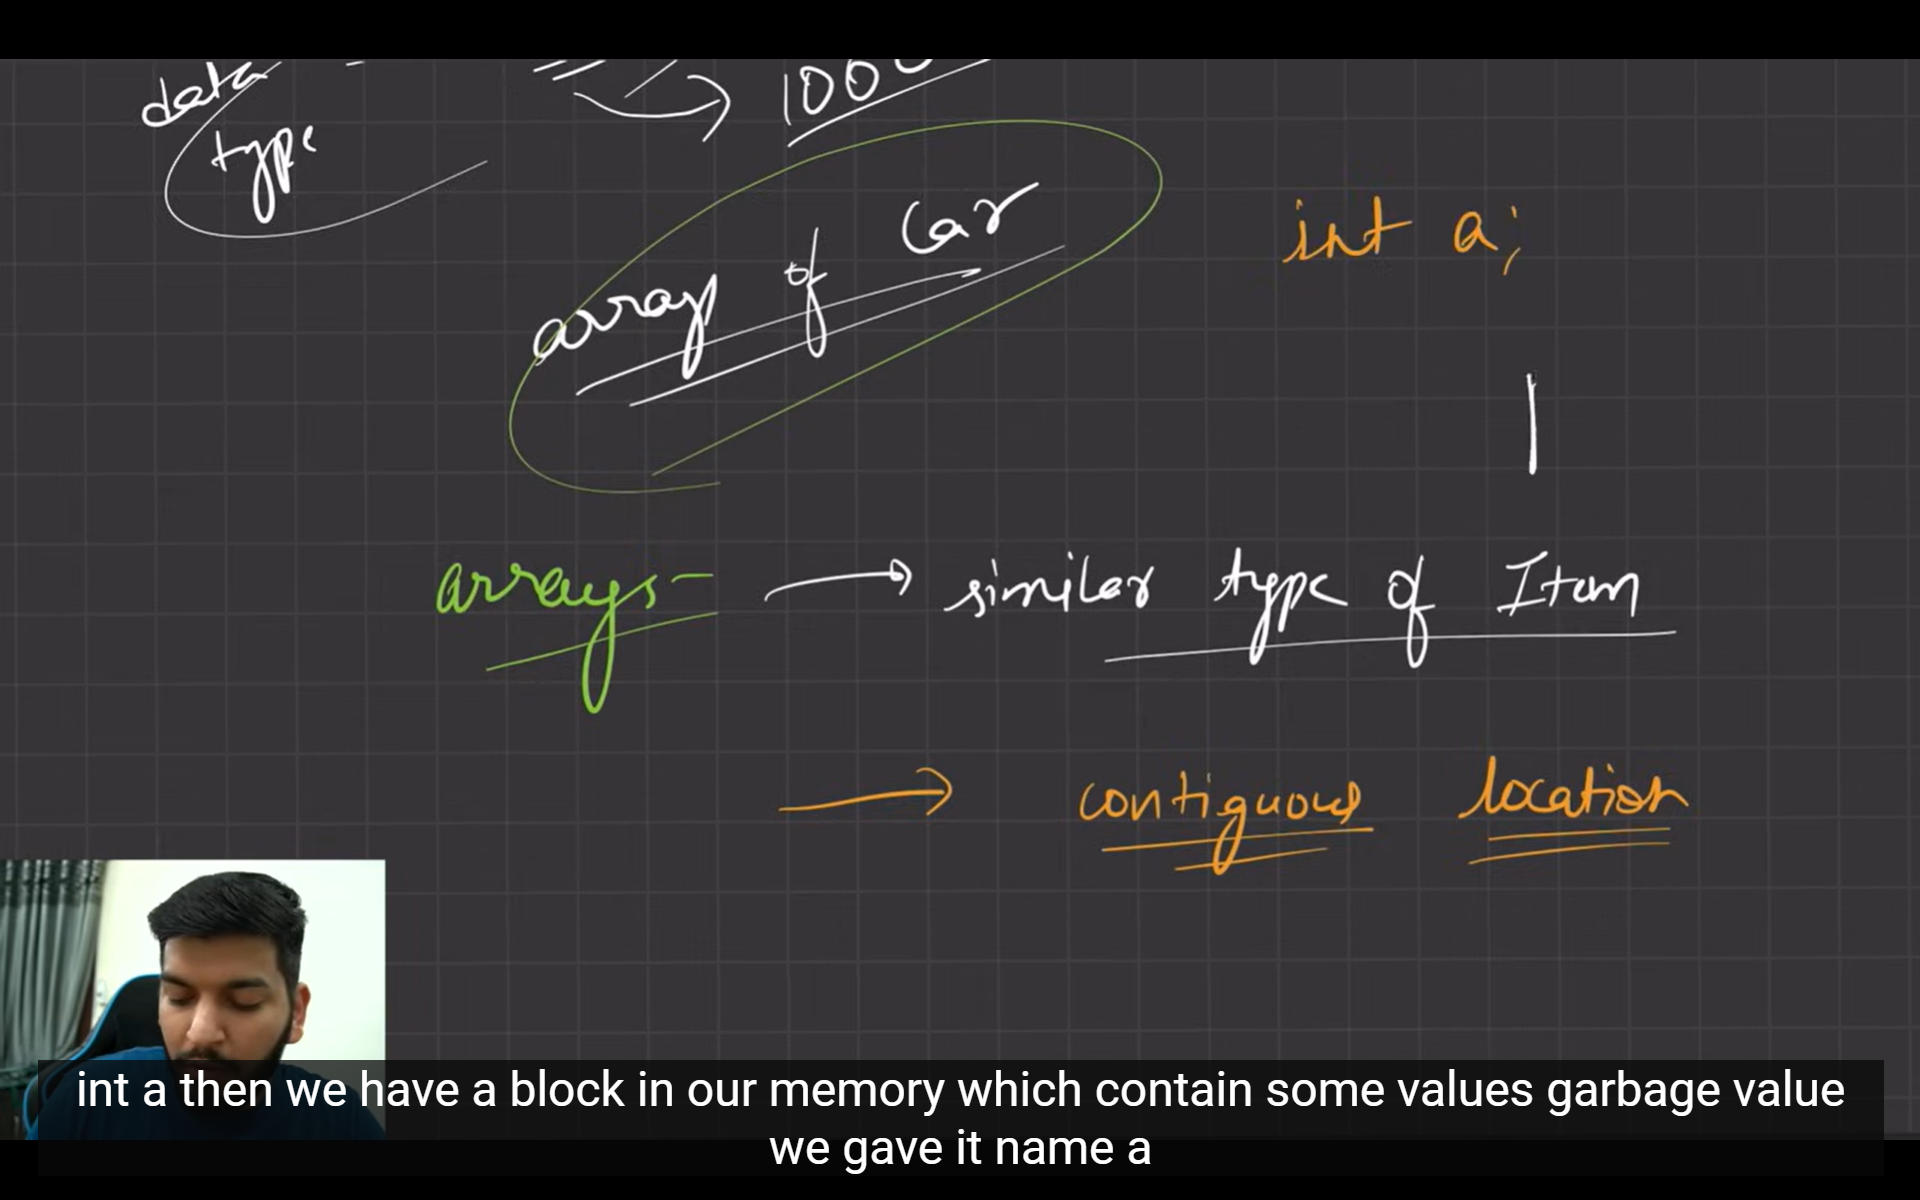 data
type
1000
array of Car
int a;
arrays - → similar type of Item
→ contiguous location
int a then we have a block in our memory which contain some values garbage value
we gave it name a